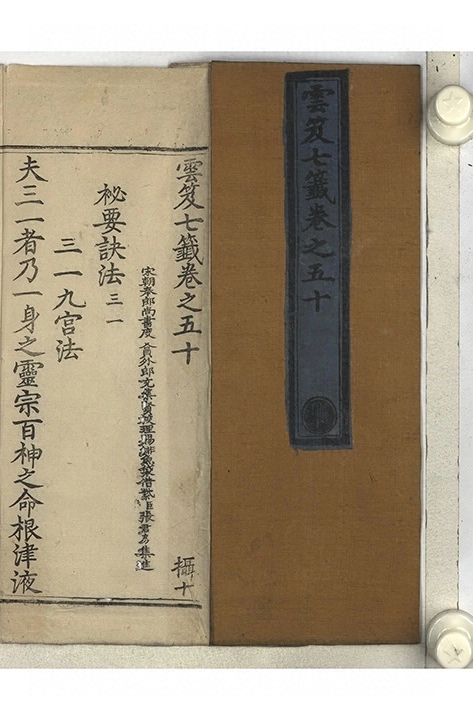 雲笈七籤卷之五十
雲笈七籤卷之五十 攝十
宋朝奉郎尚書度支員外郎充集賢校理賜緋魚袋借紫臣張君房集進
祕要訣法 三一
三一九宮法
夫三一者乃一身之靈宗百神之命根津液